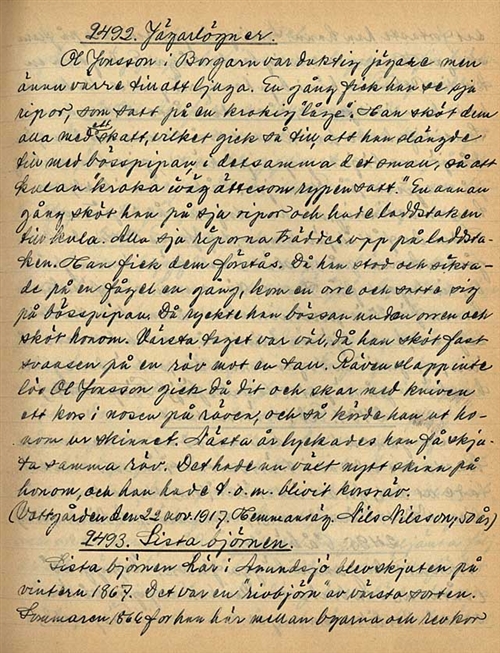 2492. Jägarlögner.
Ol Jonsson i Borgarn var duktig jägare men
ännu värre till att ljuga. En gång fick han se sju
ripor, som satt på en krokig "låge". Han sköt dem
alla med ett skatt, vilket gick så till, att han slängde
till med bösspipan, i detsamma det small, så att
kulan "kroka iväg ättesom rypen satt." En annan
gång sköt han på sju ripor och hade laddstaken
till kula. Alla sju riporna träddes upp på laddsta-
ken. Han fick dem förstås. Då han stod och sikta-
de på en fågel en gång, kom en orre och satte sig
på bösspipan. Då ryckte han bössan undan orren och
sköt honom. Värsta taget var väl, då han sköt fast
svansen på en räv mot en tall. Räven slapp inte
lös. Ol Jonsson gick då dit och skar med kniven
ett kors i nosen på räven, och så körde han ut ho-
nom ur skinnet. Nästa år lyckades han få skju-
ta samma räv. Det hade nu växt nytt skinn på
honom, och han hade t.o.m. blivit korsräv.
(Västgården den 22 nov. 1917. Hemmansäg. Nils Nilsson, 50 år)
2493. Sista björnen.
Sista björnen här i Anundsjö blev skjuten på
vintern 1867. Det var en "rivbjörn" av värsta sorten.
Sommaren 1866 for han här mellan byarna och rev kor